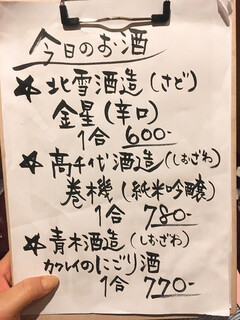 今日のお酒
★北雪酒造(さど)
金星(辛口)
1合 600-
★高千代酒造(しおざわ)
巻機(純米吟醸)
1合 780-
★青木酒造(しおざわ)
カクレイのにごり酒
1合 770-